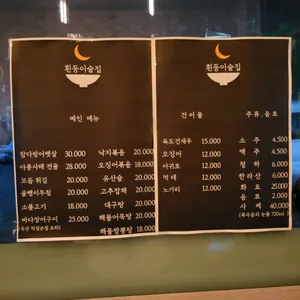 흰둥이술집
메인 메뉴
참다랑어뱃살 30.000
아롱사태 전골 28.000
모듬 튀김 20.000
골뱅이무침 20.000
소불고기 18.000
바다장어구이 25.000
낙지볶음 20.000
오징어볶음 18.000
유산슬 20.000
고추잡채 20.000
대구탕 20.000
해물어묵탕 20.000
해물짬뽕탕 18.000
흰둥이술집
건어물
독도건새우 15.000
오징어 12.000
아귀포 12.000
먹태 12.000
노가리 12.000
주류,음료
소주 4.500
맥주 4.500
청하 6.000
한라산 6.000
화요 25.000
음료 2.000
사케 40.000